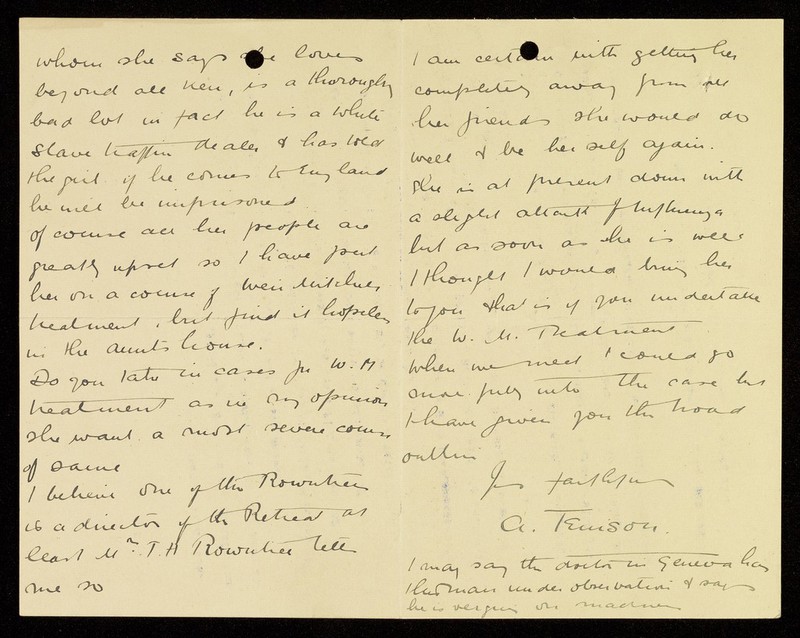 whom she says she loves
beyond all ken, is a thoroughly
bad lot in fact he is a White
Slave traffic dealer & has told
the girl if he comes to England
he will be imprisoned.
Of course all her people are
greatly upset so I have put
her on a course of Weir Mitchell
treatment, but find it hopeless
in the aunts house.
Do you take in cases for W. M
treatment as in my opinion
she want a most severe course
of same
I believe one of the Rowntrees
is a director of the Retreat at
least Mr. T. H Rowntree tells
me so
I am certain with getting her
completely away from all
her friends she would do
well & be her self again.
She is at present down with
a slight attack of Influenza
but as soon as she is well
I thought I would bring her
to you that is if you undertake
the W. M. Treatment
When we meet I could go
more fully into the case but
I have given you the broad
outline
Yrs faithfully
A. Tenison.
I may say the doctor in Geneva has
this man under observation & says
he is verging on madness